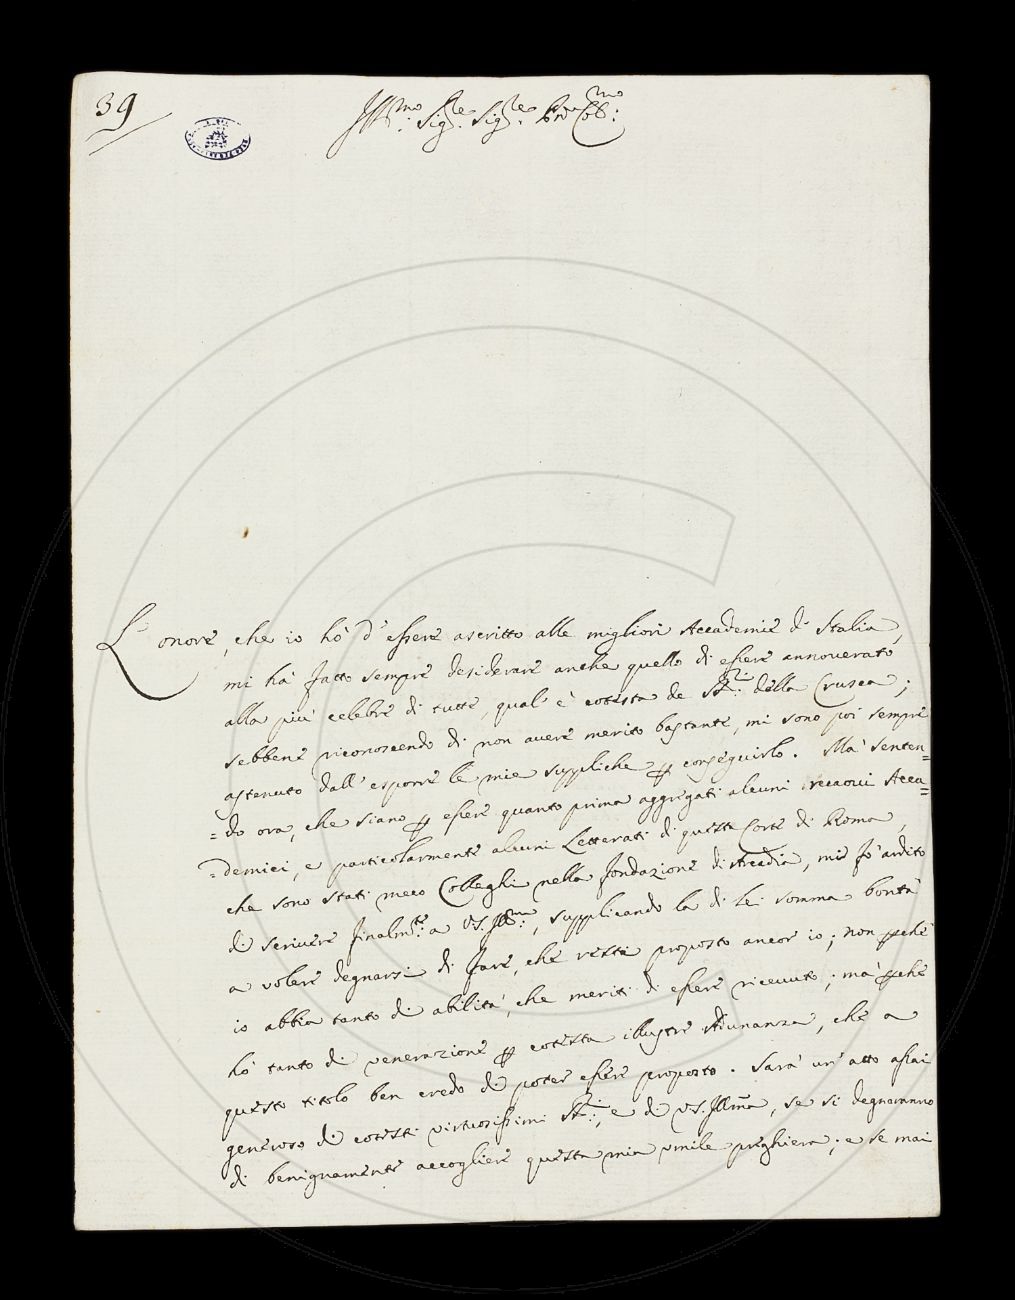 39
Ill.mo Sig.re Sig.re Pron Col.mo
L'onore, che io hò d'essere ascritto alle migliori Accademie di Italia,
mi hà fatto sempre desiderare anche quello di essere annoverato
alla più celebre di tutte, qual' è cotesta de SS.ri della Crusca;
sebbene riconoscendo di non avere merito bastante, mi sono poi sempre
astenuto dall' esporre le mie suppliche p conseguirlo. Mà senten=
=do ora, che siano p essere quanto prima aggregati alcuni nuovi Acca=
=demici, e particolarmente alcuni Letterati di questa Corte di Roma,
che sono stati meco Colleghi nella fondazione di Arcadia, mi fò ardito
di scrivere finalm.te a VS. Ill.ma, supplicando la di Lei somma bontà
a volere degnarsi di fare, che resti proposto ancor io; non pchè
io abbia tanto di abilità, che meriti di essere ricevuto; mà pchè
hò tanto di venerazione p cotesta illustre Adunanza, che a
questo titolo ben credo di poter essere proposto. Sarà un' atto assai
generoso di cotesti virtuosissimi SS.ri, e di VS. Illma, se si degneranno
di benignamente accogliere questa mia umile preghiera; e se mai